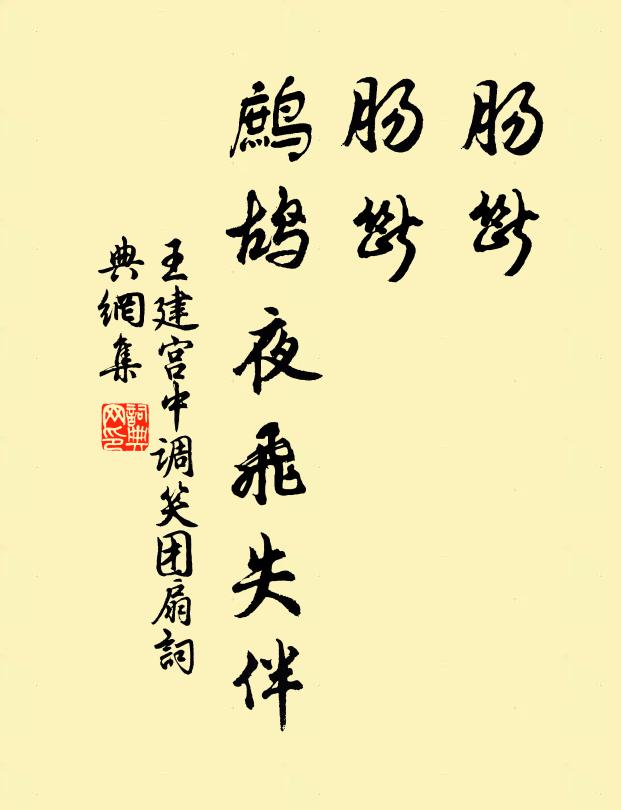 肠断
肠断
鹧鸪夜飛失伴
王建宫中调笑团扇詞
典網集
詞典网印